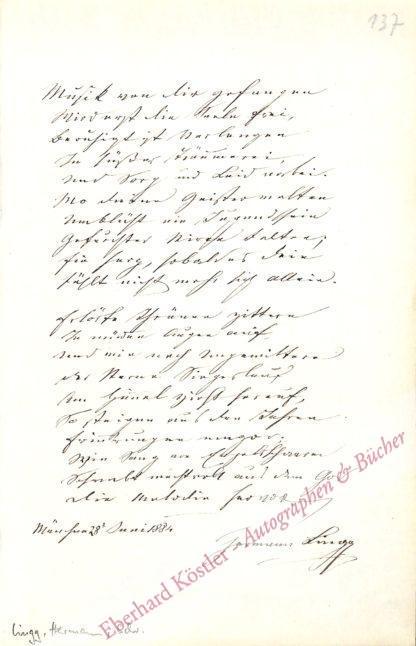 137
Musik von dir gefangen
Wird erst die Seele frei,
Beruhigt ist Verlangen
In süßer Träumerei,
Und Sorg und Leid vorbei.
Wo deine Geister walten
Umblüht ein Jugendschein
Gefurchter Stirne Falten;
Ein Herz, sobald es dein
Fühlt nicht mehr sich allein.
Erlöste Thränen zittern
In müden Augen auf
Und wie nach Ungewittern
Der Sterne Siegeslauf
Am Himmel zieht herauf,
So steigen aus den Jahren
Erinnerungen empor;
Wie Sang an
Schwebt aus dem
Die Melodie hervor.
München 28t Juni 1884
Hermann Lingg
Eberhard Köstler - Autographen & Bücher
Lingg, Hermann